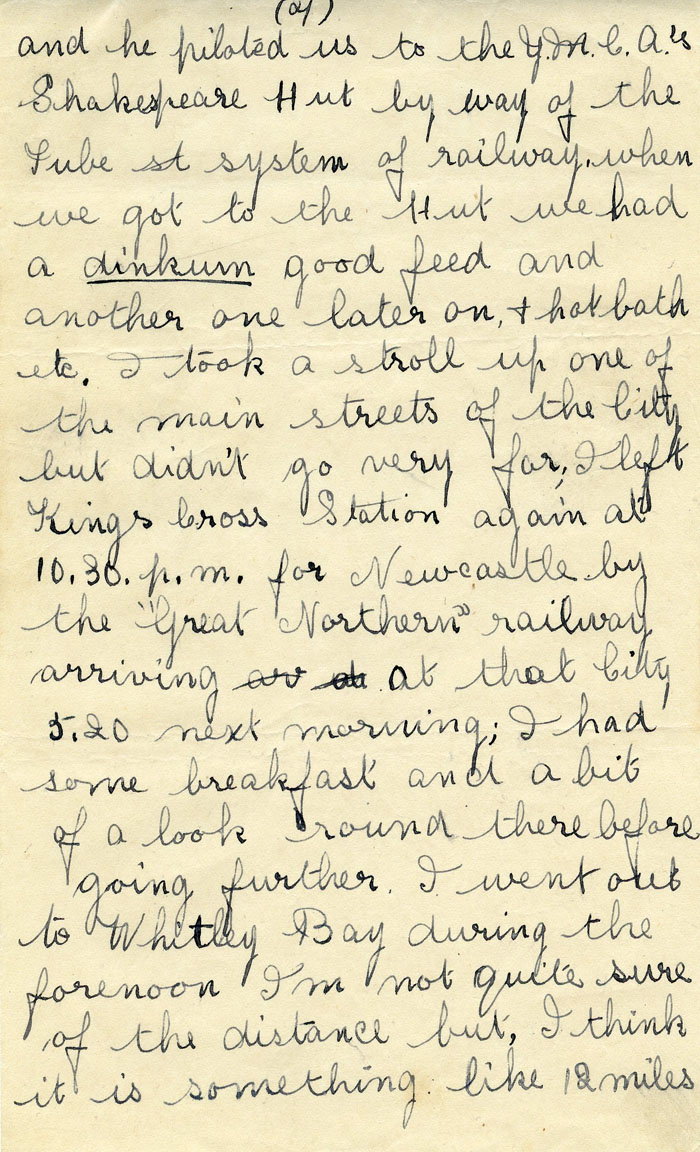 and he piloted us to the Y.M.C.A.'s
Shakespeare Hut by way of the
Tube st system of railway. when
we got to the Hut we had
a dinkum good feed and
another one later on, + hot bath
etc. I took a stroll up one of
the main streets of the City
but didn't go very far, I left
Kings Cross Station again at
10.30. p.m. for Newcastle by
the "Great Northern" railway
arriving ar at at that City
5.20 next morning; I had
some breakfast and a bit
of a look round there before
going further. I went out
to Whitley Bay during the
forenoon I'm not quite sure
of the distance but, I think
it is something like 12 miles